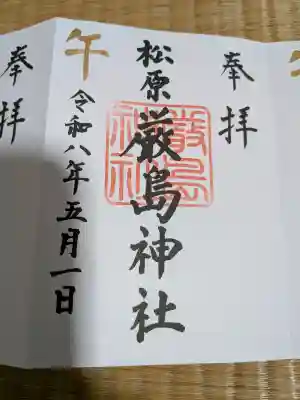 奉拝
松原
厳島神社
厳島
神社
午
令和八年五月一日
奉拝